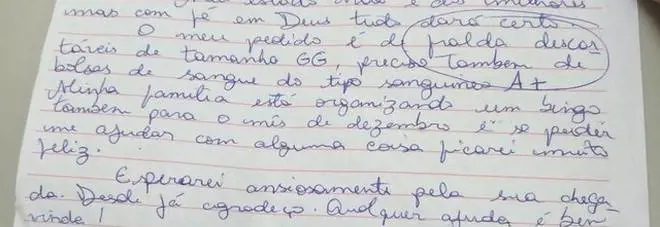 não estado
mas com fé em Deus tudo dará certo.
O meu pedido é de fralda descar
táveis de tamanho GG, preciso também de
bolsas de sangue do tipo sanguíneo A+
Minha família está organizando um bingo
também para o mês de dezembro é se puder
me ajudar com alguma coisa ficarei muito
feliz.
Esperarei ansiosamente pela sua chega
da. Desde já agradeço. Qualquer ajuda é bem
vinda!